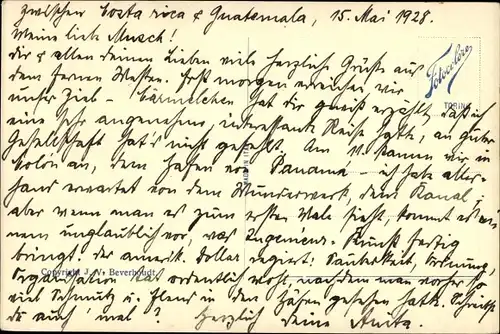 zwischen Costa rica & Guatemala, 15. Mai 1928.
Meine liebe Musch!
Dir & allen deinen Lieben viele herzliche Grüße aus
dem fernen Westen. Erst morgen erreichen wir
unser Ziel - hat dir gewiß erzählt, daß ich
eine sehr angenehme, interessante Reise hatte, an guter
Gesellschaft hat's nicht gefehlt. Am 11. kamen wir in
Colón an, dem Hafen von Panamá - ich habe aller-
hand erwartet von dem Wunderwerk, dem Kanal,
aber wenn man es zum ersten Male sieht, kommt es ei-
nem unglaublich vor, was Ingenieurs-Kunst fertig
bringt. Der amerik. Dollar regiert: Sauberkeit, Ordnung,
Organisation tat ordentlich wohl, nachdem man vorher so
viel Schmutz u. Elend in den Häfen gesehen hatte. Schreibst
du auch 'mal? Herzlich deine Anita.
Fotocelere
TORINO
Copyright J. V. Beverhoudt